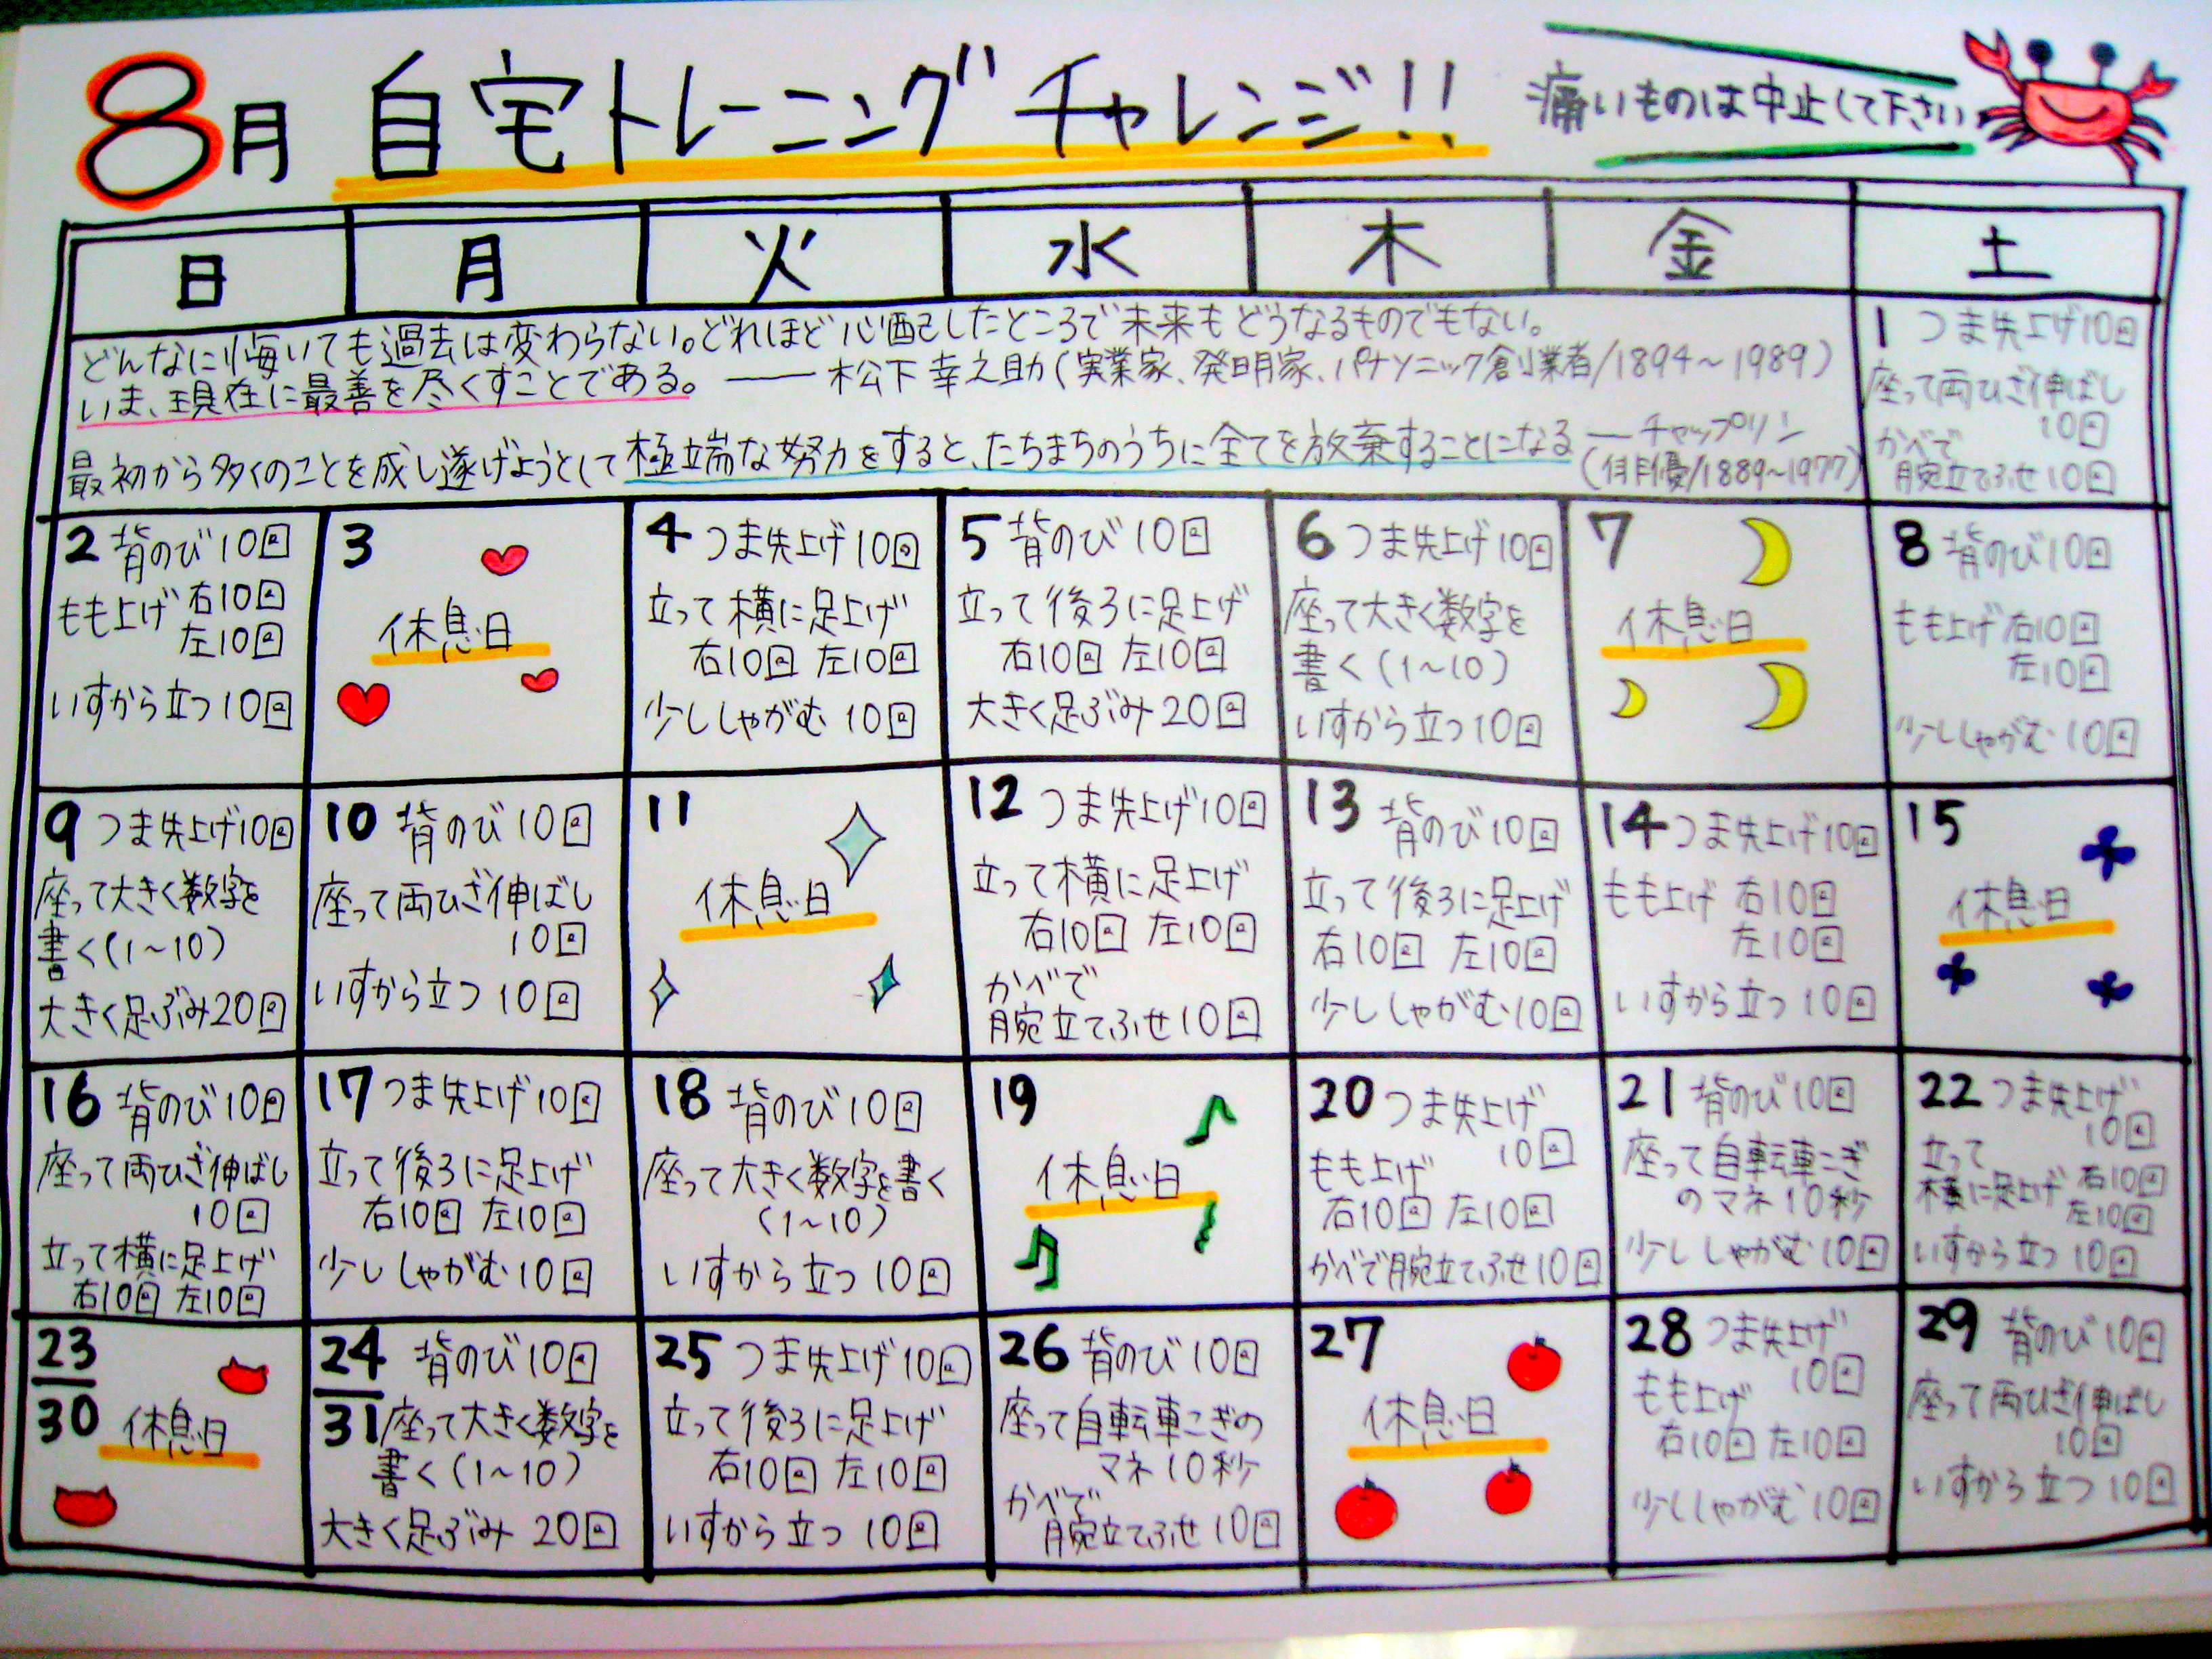 8月 自宅トレーニングチャレンジ!!
痛いものは中止して下さい
日 月 火 水 木 金 土
どんなに悔いても過去は変わらない。どれほど心配したところで未来もどうなるものでもない。
いま、現在に最善を尽くすことである。 ―― 松下幸之助(実業家、発明家、パナソニック創業者/1894～1989)
最初から多くのことを成し遂げようとして極端な努力をすると、たちまちのうちに全てを放棄することになる ― チャップリン
(俳優/1889～1977)
1 つま先上げ10回
座って両ひざ伸ばし
10回
かべで
腕立てふせ10回
2 背のび10回
もも上げ 右10回
左10回
いすから立つ10回
3
休息日
4 つま先上げ10回
立って横に足上げ
右10回 左10回
少ししゃがむ 10回
5 背のび 10回
立って後ろに足上げ
右10回 左10回
大きく足ぶみ20回
6 つま先上げ10回
座って大きく数字を
書く(1～10)
いすから立つ10回
7
休息日
8 背のび10回
もも上げ 右10回
左10回
少ししゃがむ10回
9 つま先上げ10回
座って大きく数字を
書く(1～10)
大きく足ぶみ20回
10 背のび10回
座って両ひざ伸ばし
10回
いすから立つ 10回
11
休息日
12 つま先上げ10回
立って横に足上げ
右10回 左10回
かべで
腕立てふせ10回
13 背のび10回
立って後ろに足上げ
右10回 左10回
少ししゃがむ10回
14 つま先上げ10回
もも上げ 右10回
左10回
いすから立つ 10回
15
休息日
16 背のび10回
座って両ひざ伸ばし
10回
立って横に足上げ
右10回 左10回
17 つま先上げ10回
立って後ろに足上げ
右10回 左10回
少ししゃがむ10回
18 背のび10回
座って大きく数字を書く
(1～10)
いすから立つ 10回
19
休息日
20 つま先上げ
10回
もも上げ
右10回 左10回
かべで腕立てふせ10回
21 背のび10回
座って自転車こぎ
のマネ10秒
少ししゃがむ10回
22 つま先上げ
10回
立って
横に足上げ 右10回
左10回
いすから立つ 10回
23
30 休息日
24 背のび10回
31 座って大きく数字を
書く(1～10)
大きく足ぶみ 20回
25 つま先上げ10回
立って後ろに足上げ
右10回 左10回
いすから立つ 10回
26 背のび10回
座って自転車こぎの
マネ10秒
かべで
腕立てふせ10回
27
休息日
28 つま先上げ
10回
もも上げ
右10回 左10回
少ししゃがむ10回
29 背のび10回
座って両ひざ伸ばし
10回
いすから立つ 10回